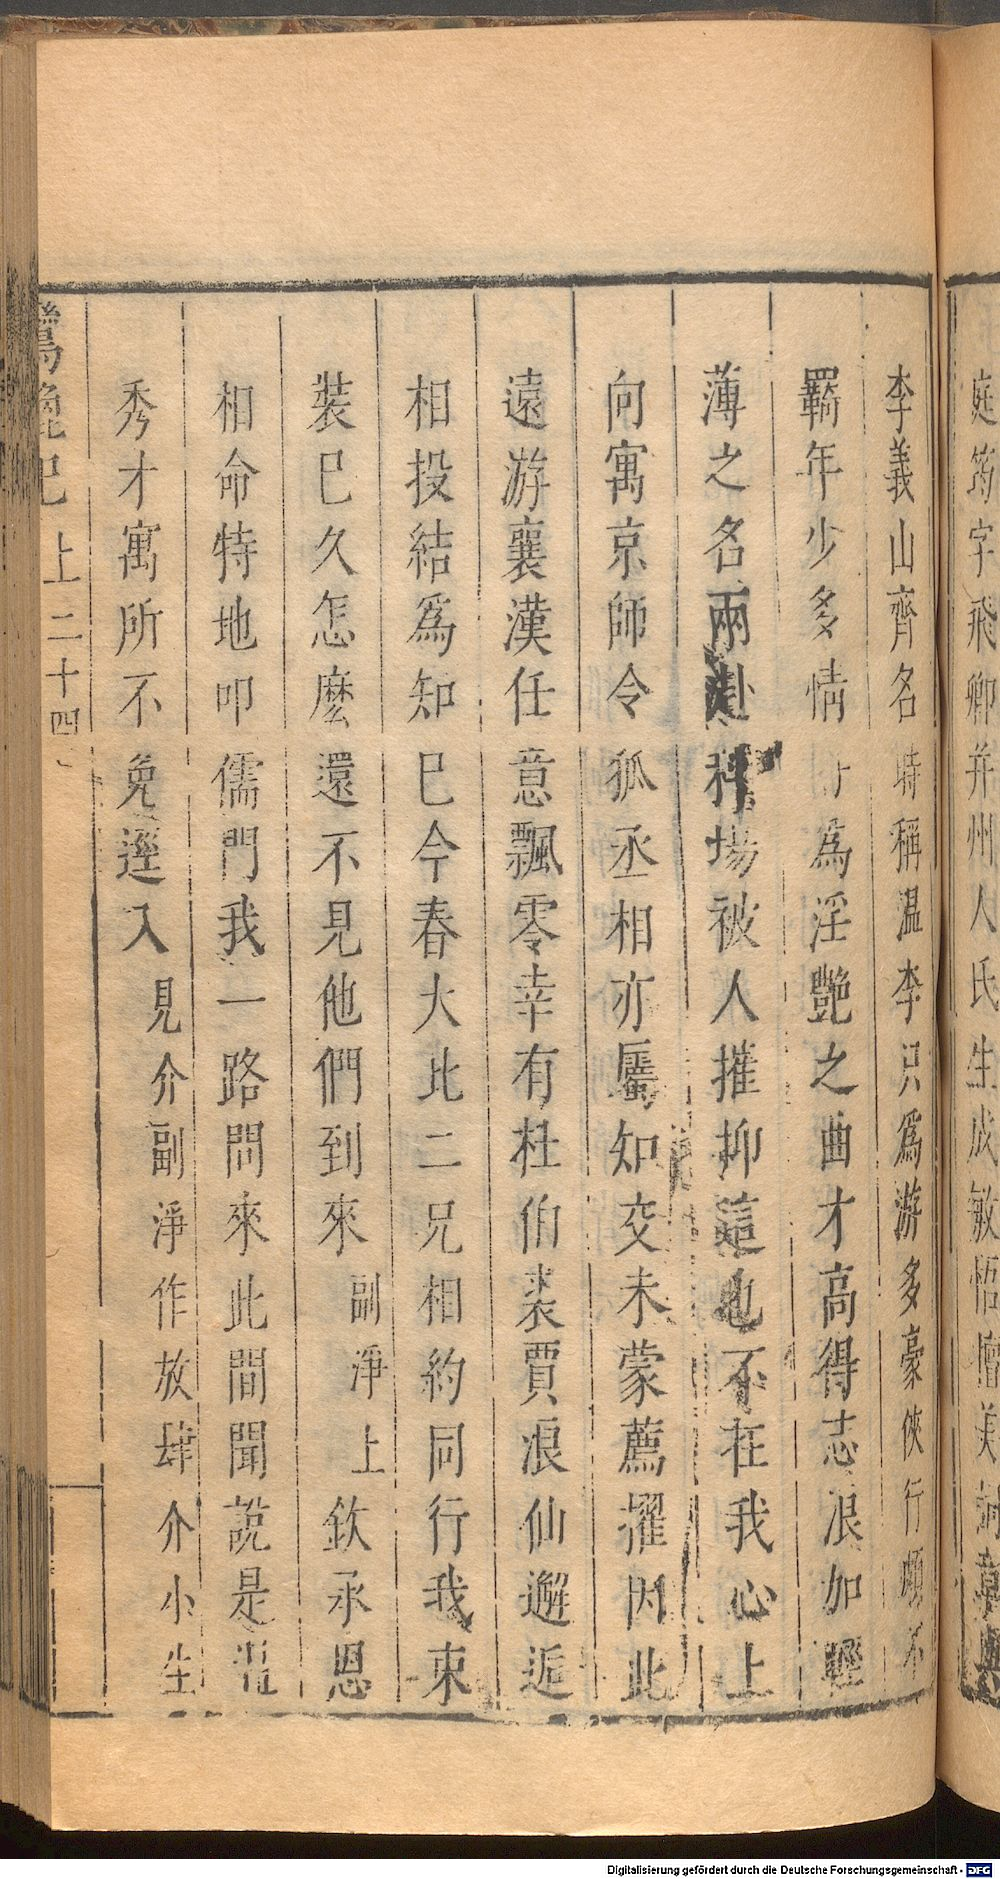 庭筠字飛卿并州人氏生成敏悟擅美詞章與
李義山齊名時稱溫李只爲游多豪俠行頗不
羈年少多情 爲淫艷之曲才高得志浪加輕
薄之名兩赴科場被人摧抑這也不在我心上
向寓京師令狐丞相亦屬知交未蒙薦擢因此
遠游襄漢任意飄零幸有杜伯裘賈浪仙邂逅
相投結爲知巳今春大比二兄相約同行我束
裝巳久怎麽還不見他們到來副淨上欽承恩
相命特地叩儒門我一路問來此間聞說是
秀才寓所不免逕入見介副淨作放肆介小生
鸞鎞記上二十四
Digitalisierung gefördert durch die Deutsche Forschungsgemeinschaft - DFG